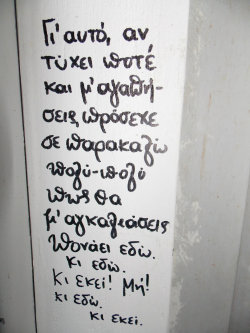 Γι' αυτό, αν
τύχει ποτέ
και μ' αγαπή-
σεις, πρόσεχε
σε παρακαλώ
πολύ-πολύ
πως θα
μ' αγκαλιάσεις
Πονάει εδώ.
κι εδώ.
Κι εκεί! Μή!
κι εδώ.
κι εκεί.